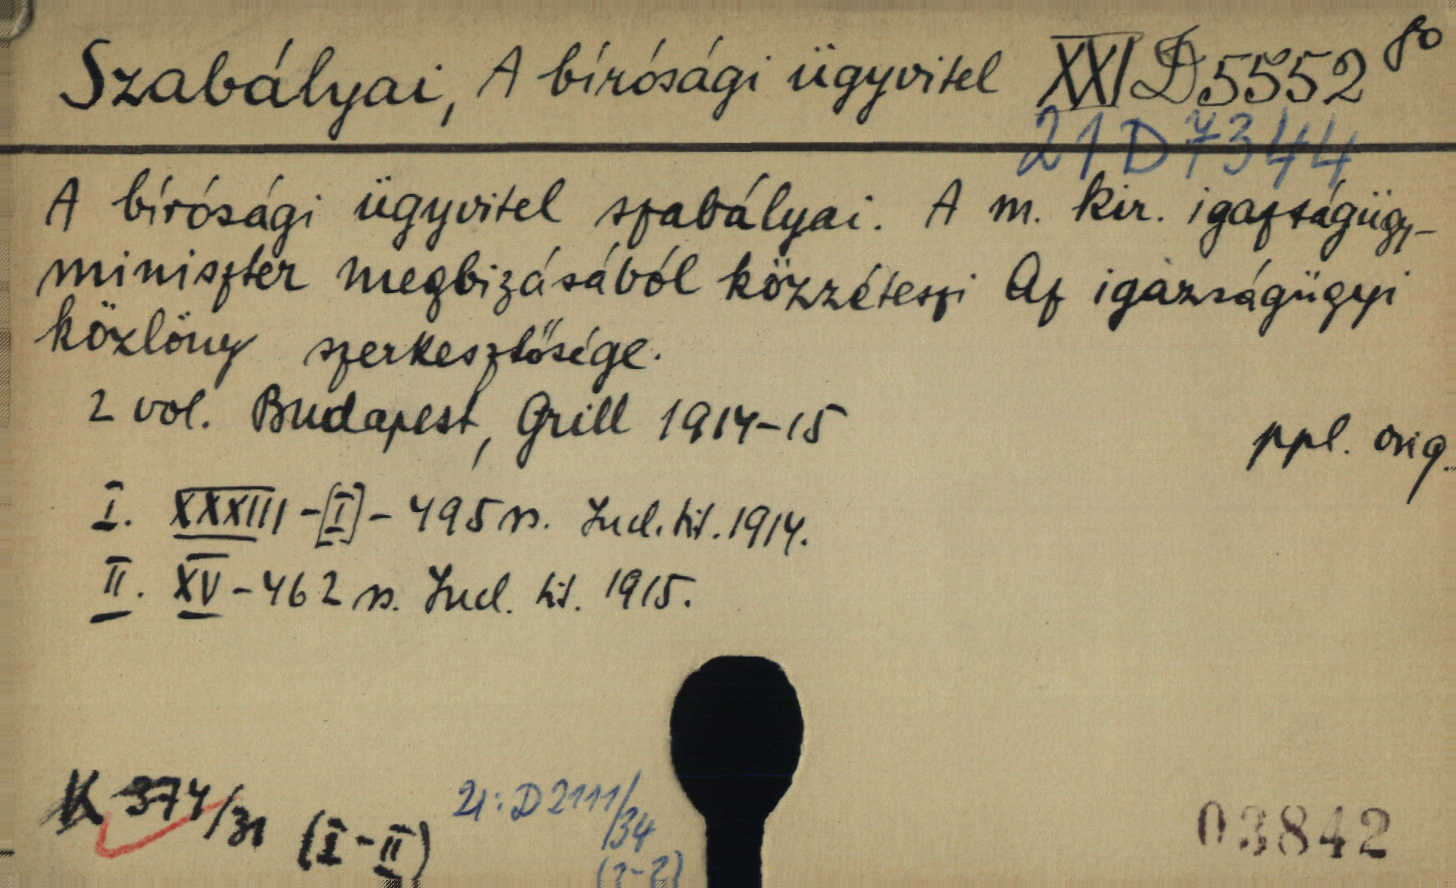 Szabályai, A bírósági ügyvitel XXI D 5552 80
21 D 7344
A bírósági ügyvitel szabályai. A m. kir. igazságügy-
miniszter megbizásából közzéteszi Az igazságügyi
közlöny szerkesztősége.
2 vol. Budapest, Grill 1914-15
ppl. orig.
I. XXXIII -[I]- 495 p. Jud. tit. 1914.
II. XV - 462 p. Jud. tit. 1915.
K 374/31 (I-II)
21: D 2111/34
(1-2)
03842